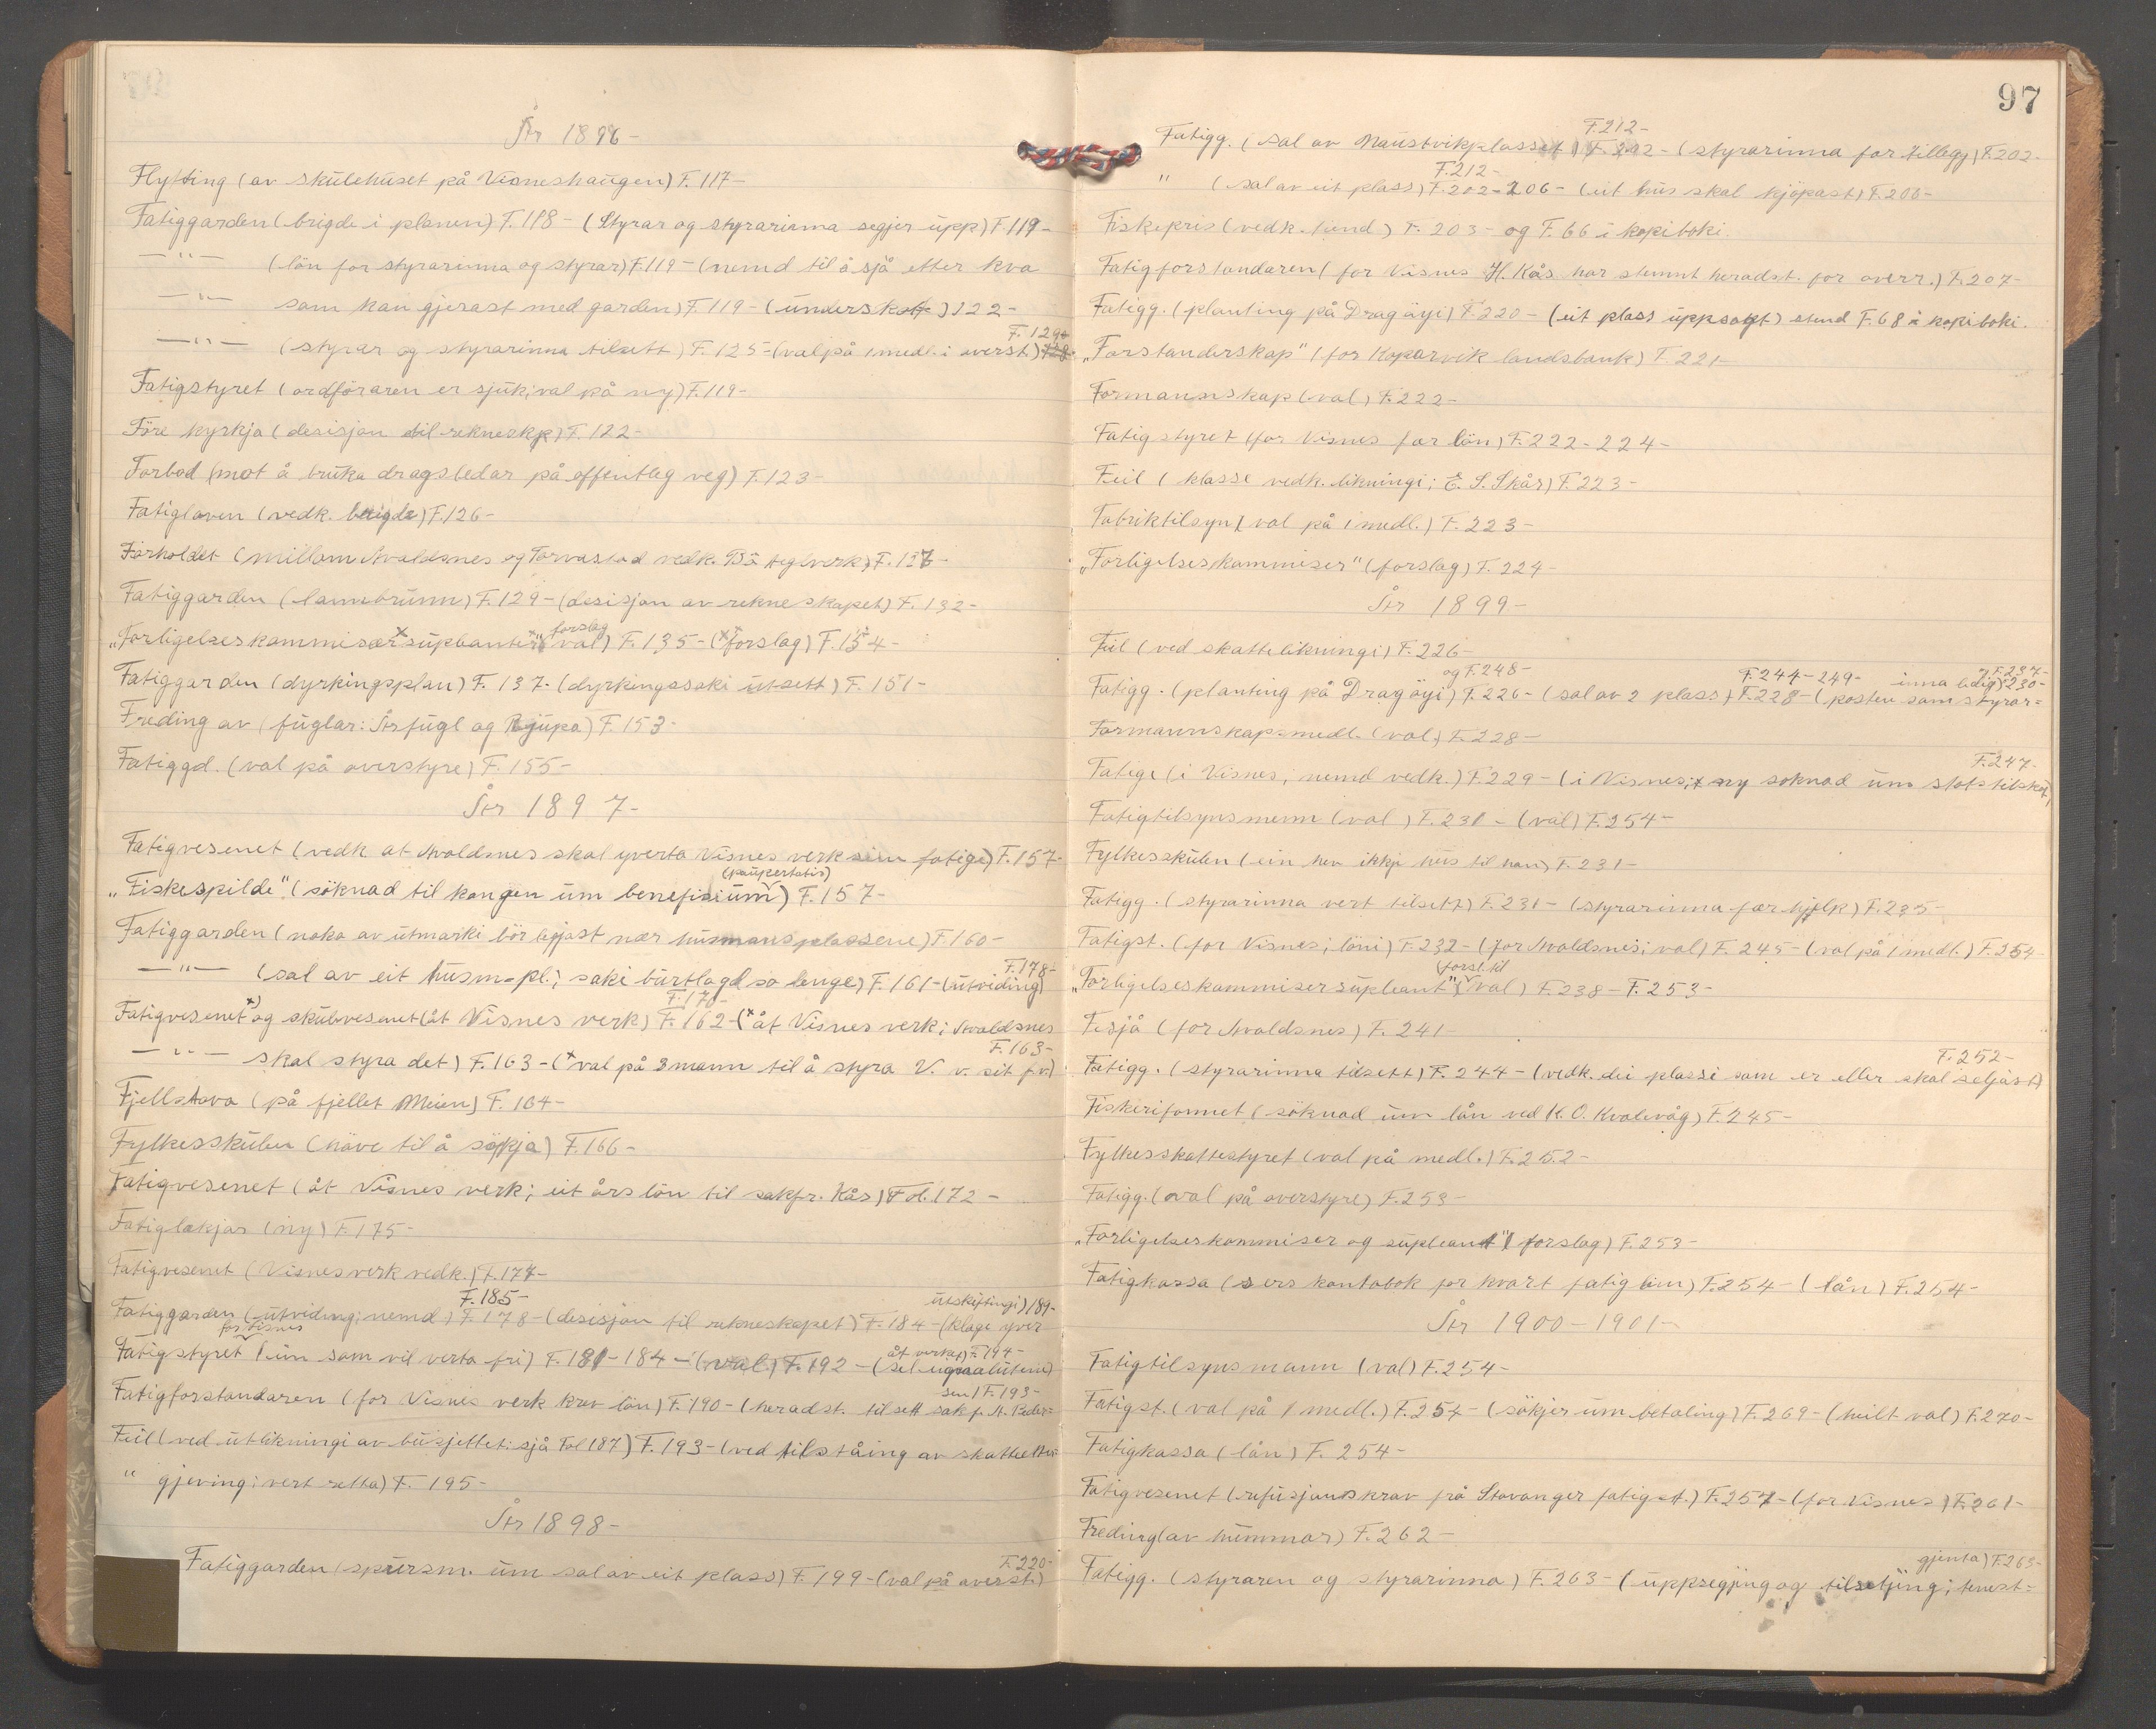 År 1896-
Flytting (av skülehüset på Visneshaügen) F. 117-
Fatiggarden (brigde i planen) F. 118- (Styrar og styrarinna segjer üpp) F. 119-
—"— (lön for styrarinna og styrar) F. 119- (nemd til å sjå etter kva
—"— som kan gjerast med garden) F. 119- (ünderskott) 122-
F. 129-
—"— (styrar og styrarinna tilsett) F. 125- (val på 1 medl. i overst.)
Fatigstyret (ordföraren er sjük; val på ny) F. 119-
Före kyrkja (desisjon til rekneskp) F. 122-
Forbod (mot å brüka dragsledar på offentleg veg) F. 123-
Fatiglaven (vedk. brigde) F. 126-
Forholdet (millom Avaldsnes og Torvastad vedk. Bö teglverk) F. 127-
Fatiggarden (lannebrünn) F. 129- (desisjon av rekneskapet) F. 132-
forslag
"Forligelseskommisær süpleanter" (val) F. 135- (forslag) F. 154-
Fatiggarden (dyrkingsplan) F. 137- (dyrkingssaki ütsett) F. 151-
Freding av (füglar: Årfügl og Rjüpa) F. 153-
Fatiggd. (val på overstyre) F. 155-
År 1897-
Fatigvesenet (vedk at Avaldsnes skal yverta Visnes verk sine fatige) F. 157-
(paüpertatis)
"Fiskespilde" (söknad til kongen üm benefisiüm) F. 157-
Fatiggarden (noko av ütmarki bör leggjast nær hüsmansplassene) F. 160-
F. 178-
—"— (sal av eit hüsm-pl.; saki bürtlagd so lenge) F. 161- (ütviding)
F. 170-
Fatigvesenet og skülevesenet (åt Visnes verk) F. 162- (åt Visnes verk; Avaldsnes
F. 163-
—"— skal styra det) F. 163- (val på 3 mann til å styra V. v. sit f.v.)
Fjellstova (på fjellet Meien) F. 164-
Fylkesskülen (höve til å sökja) F. 166-
Fatigvesenet (åt Visnes verk; eit års lön til sakfr. Kås) Fol. 172-
Fatiglækjar (ny) F. 175-
Fatigvesenet (Visnes verk vedk.) F. 177-
F. 185-
ütskiftingi) 189-
Fatiggarden (ütviding; nemd) F. 178- (desisjon til rekneskapet) F. 184- (klage yver
for Visnes
åt verket) F. 194-
Fatigstyret (ün som vil verta fri) F. 181-184- (val) F. 192-
sen) F. 193-
Fatigforstandaren (for Visnes verk krev lön) F. 190- (heradst. tilsett sakf. A. Peder-
Feil (ved ütlikningi av büsjettet: sjå Fol 187) F. 193- (ved tilståing av skatteetter-
" gjeving; vert retta) F. 195-
År 1898-
F. 220-
Fatiggarden (spürsm. üm sal av eit plass) F. 199- (val på overst.)
97
F. 212-
Fatigg. (sal av Naustvikplasset) F. 202- (styrarinna får tillegg) F. 202-
F. 212-
" (sal av eit plass) F. 202-206- (eit hüs skal kjöpast) F. 206-
Fiskepris (vedk. tiend) F. 203- og F. 66 i kopiboki.
Fatigforstandaren (for Visnes H. Kås har stemnt heradst. for overr.) F. 207-
Fatigg. (planting på Dragöyi) F. 220- (eit plass üppsagt) stend F. 68 i kopiboki.
"Forstanderskap" (for Kopervik landsbank) F. 221-
Formannskap (val) F. 222-
Fatigstyret (for Visnes får lön) F. 222-224-
Feil (klasse vedk. likningi; E. S. Skår) F. 223-
Fabriktilsyn (val på 1 medl.) F. 223-
"Forligelseskommiser" (forslag) F. 224-
År 1899-
Feil (ved skattelikningi) F. 226-
og F. 248-
F. 244-249-
inna ledig) 230-
og F. 237-
Fatigg. (planting på Dragöyi) F. 226- (sal av 2 plass) F. 228- (posten som styrar-
Formannskap-medl. (val) F. 228-
F. 247-
Fatige (i Visnes, nemd vedk.) F. 229- (i Visnes; ny soknad üm statstilskot)
Fatigtilsynsmenn (val) F. 231- (val) F. 254-
Fylkesskülen (ein hev ikkje hüs til han) F. 231-
Fatigg. (styrarinna vert tilsett) F. 231- (styrarinna fær hjelp) F. 235-
Fatigst. (for Visnes; löni) F. 232- (for Avaldsnes; val) F. 245- (val på 1 medl.) F. 254-
(forsl. til
"Forligelseskommiser süpleant" (val) F. 238- F. 253-
Fesjå (for Avaldsnes) F. 241-
F. 252-
Fatigg. (styrarinna tilsett) F. 244- (vedk. dei plassi som er eller skal seljast)
Fiskerifonnet (söknad üm lån ved K. O. Kvalevåg) F. 245-
Fylkesskattestyret (val på medl.) F. 252-
Fatigg. (val på overstyre) F. 253-
"Forligelseskommiser og süpleant" (forslag) F. 253-
Fatigkassa (sers kontobok for kvart fatiglem) F. 254- (lån) F. 254-
År 1900-1901-
Fatigtilsynsmann (val) F. 254-
Fatigst. (val på 1 medl.) F. 254- (sökjer üm betaling) F. 269- (heilt val) F. 270-
Fatigkassa (lån) F. 254-
Fatigvesenet (refüsjonskrav frå Stavanger fatigst.) F. 257- (for Visnes) F. 261-
Freding (av hümmar) F. 262-
gjenta) F. 263-
Fatigg. (styraren og styrarinna) F. 263- (üppsegjing og tilsetjing; tenest-